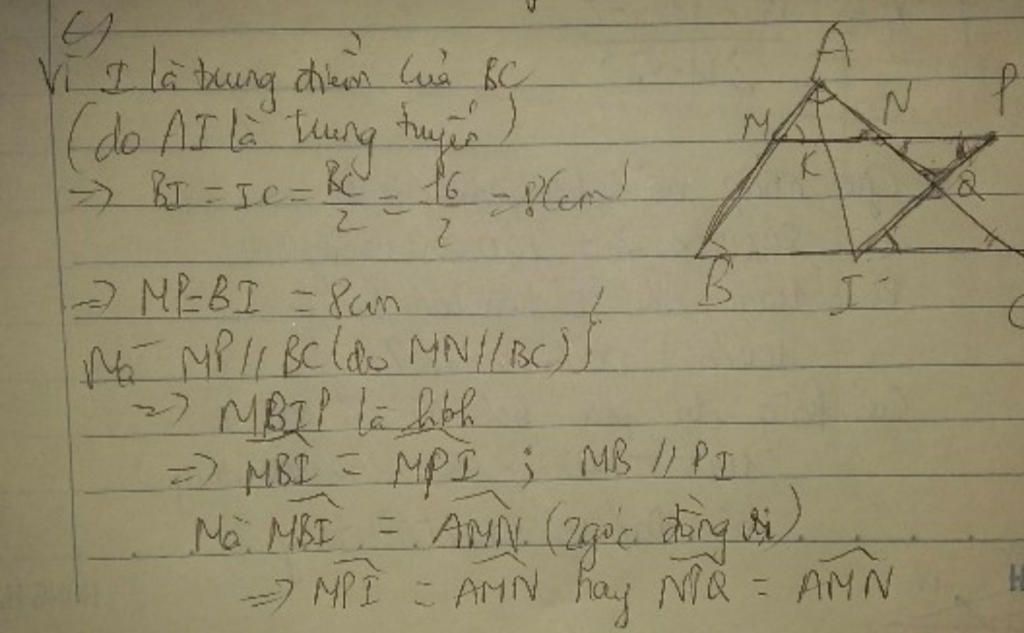 c)
Vì I là trung điểm của BC
(do AI là trung tuyến)
=> BI = IC = BC/2 = 16/2 = 8(cm)
=> MP=BI = 8cm }
Mà MP // BC (do MN // BC) }
=> MBIP là hbh
=> MBI = MPI ; MB // PI
Mà MBI = AMN (2 góc đồng vị)
=> MPI = AMN hay NPQ = AMN
A
M
N
P
K
Q
B
I
C